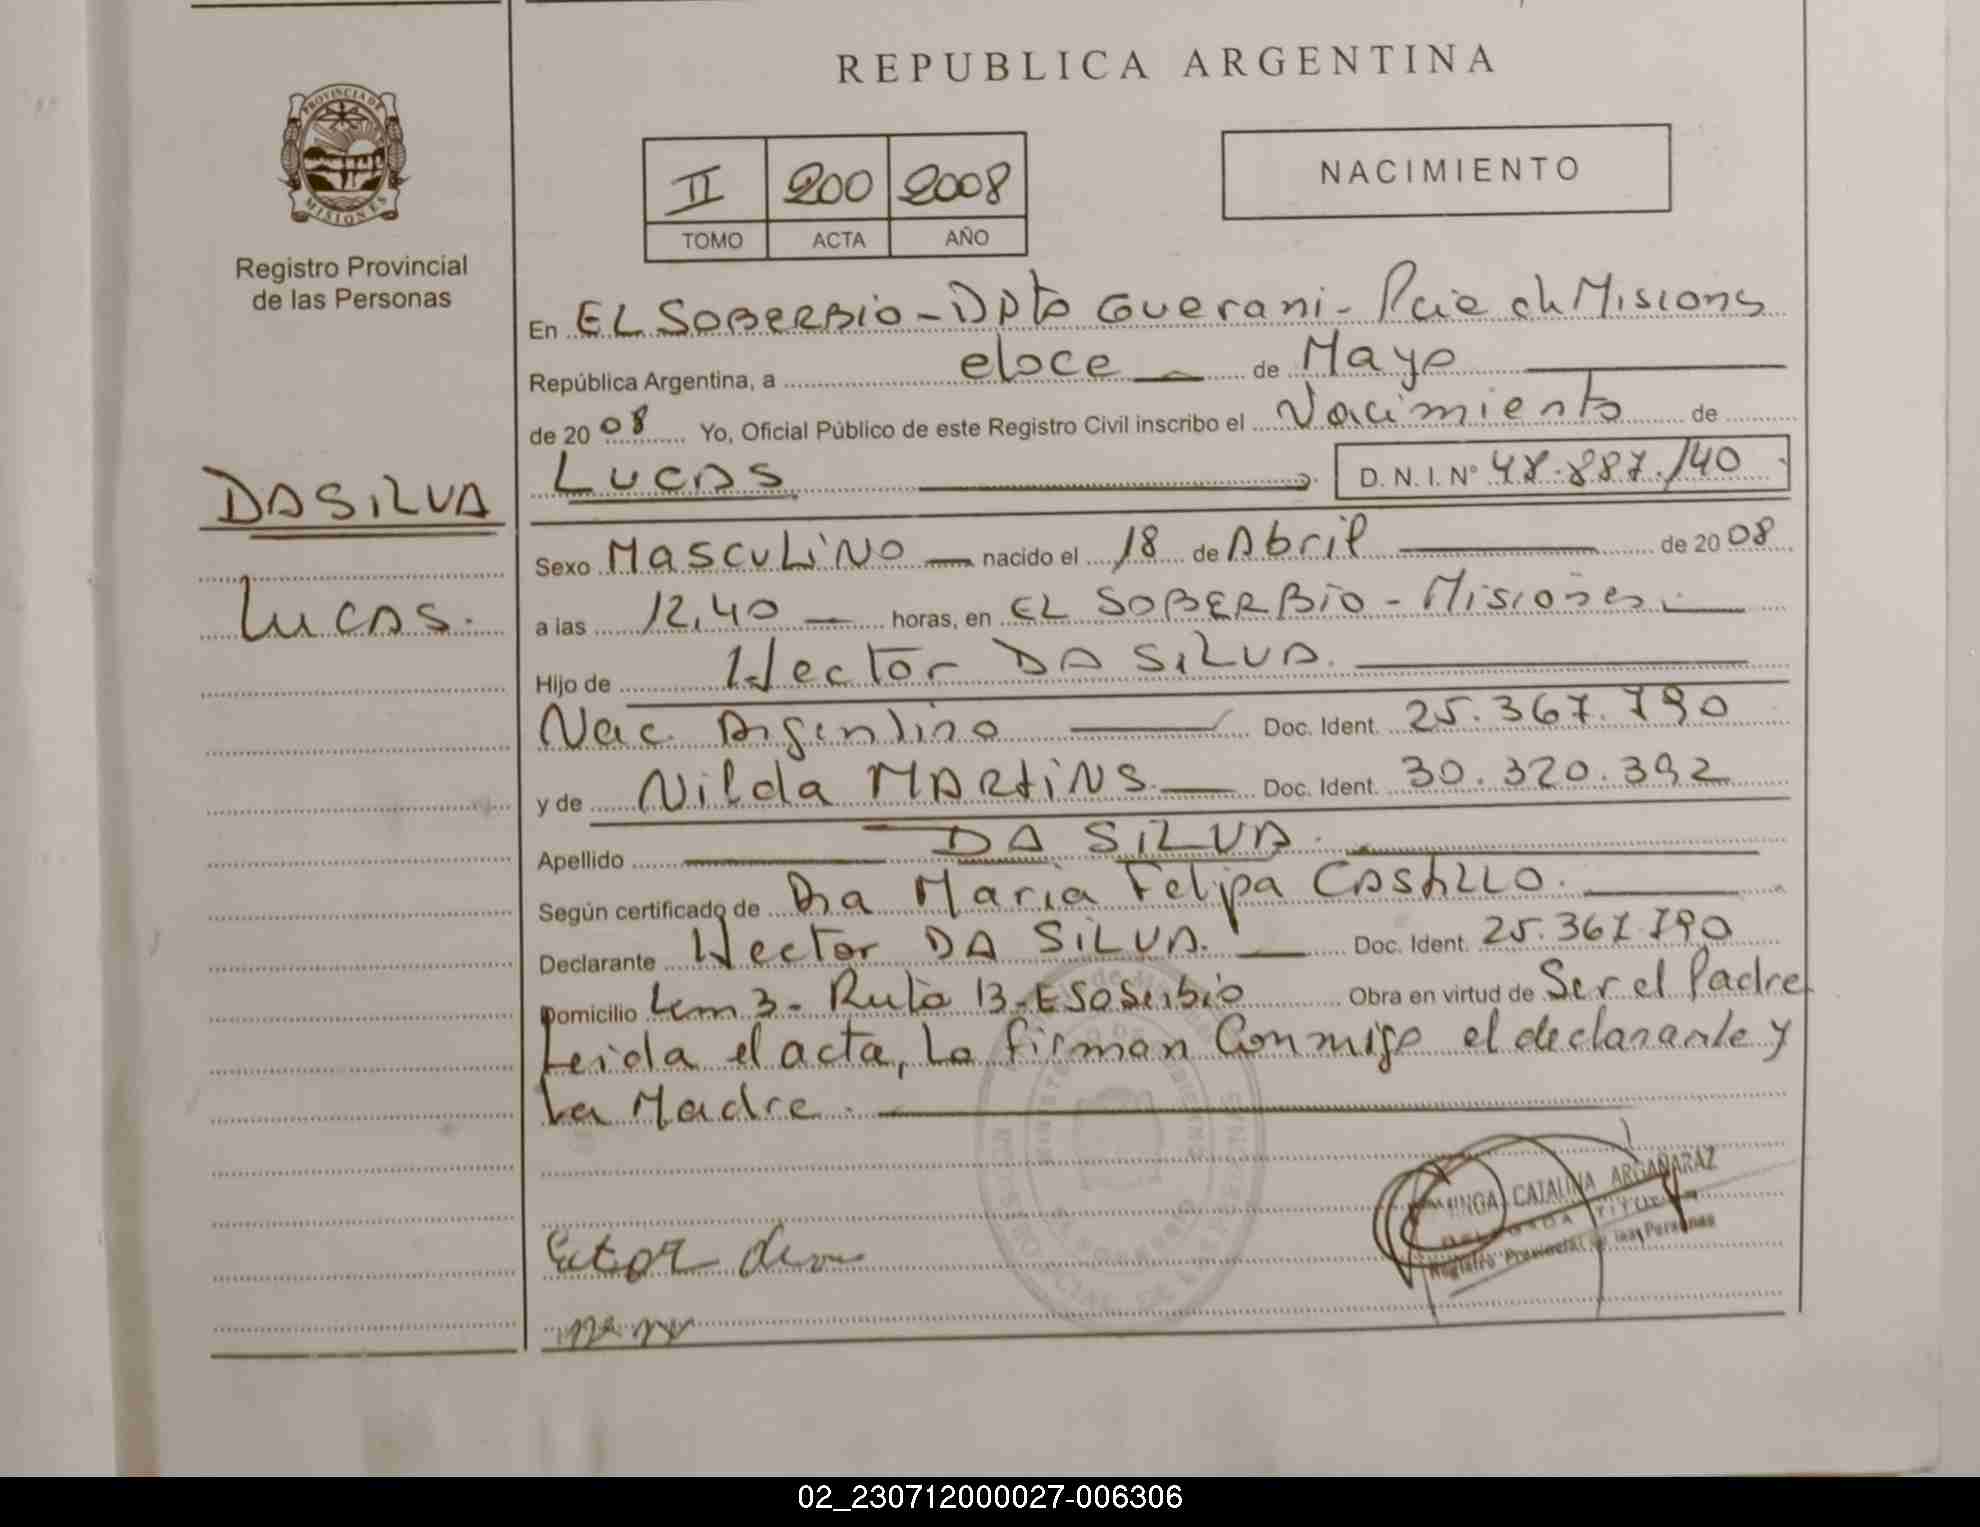 REPUBLICA ARGENTINA
PROVINCIA DE
MISIONES
Registro Provincial
de las Personas
II 200 2008
TOMO ACTA AÑO
NACIMIENTO
En EL SOBERBIO - DPto Guarani - Pcia de Misiones
República Argentina, a doce de Mayo
de 2008 Yo, Oficial Público de este Registro Civil inscribo el Nacimiento de
DA SILVA
LUCAS D.N.I. N° 48.887.140
Sexo MASCULINO nacido el 18 de Abril de 2008
Lucas.
a las 12,40 horas, en EL SOBERBIO - Misiones.
Hijo de Hector DA SILVA.
Nac. Argentino Doc. Ident. 25.367.790
y de Nilda MARtiNS Doc. Ident. 30.320.392
Apellido DA SILVA.
Según certificado de Dra Maria Felipa CAStiLLO.
Declarante Hector DA SILVA. Doc. Ident. 25.367.790
Domicilio Km 3 - Ruta 13 - Obra en virtud de Ser el Padre
Leida el acta, la firman Conmigo el declarante y
La Madre.
CATALINA ARGAÑARAZ
Registro Provincial de las Personas
02_230712000027-006306